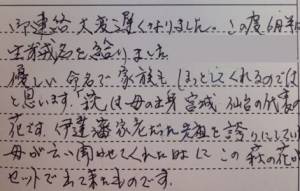 御連絡大変遅くなりました。この度6月半
生前戒名を給りました
優しい命名で家族も ほっとしてくれるのでは
と思います。萩は母の出身 宮城 仙台の代表の
花です。伊達藩家老だった先祖を誇りにしてい
母が云い聞かせてくれた時に この萩の花が
セットで出て来たものです。